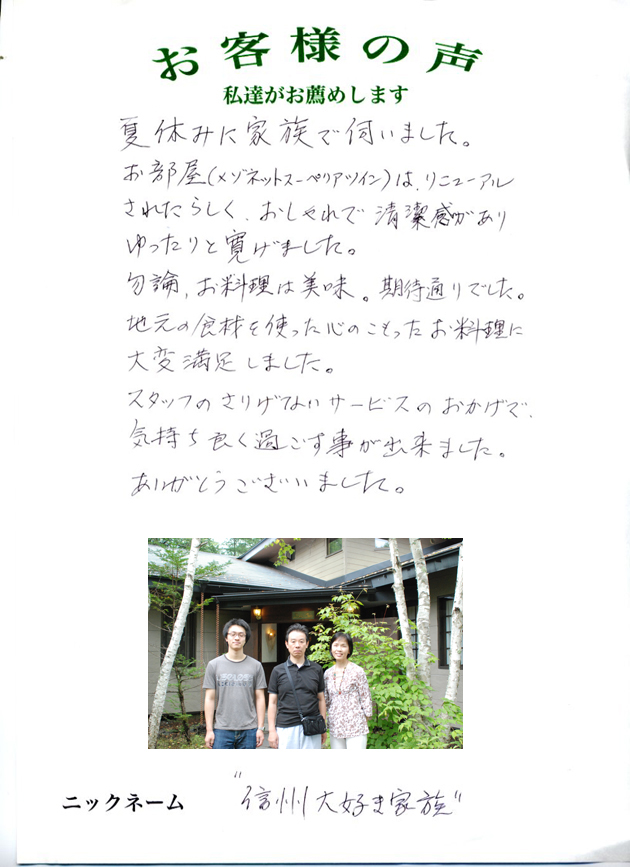 お客様の声
私達がお薦めします
夏休みに家族で伺いました。
お部屋(メゾネットスーペリアツイン)は、リニューアル
されたらしく、おしゃれで清潔感があり
ゆったりと寛げました。
勿論、お料理は美味。期待通りでした。
地元の食材を使った心のこもったお料理に
大変満足しました。
スタッフのさりげないサービスのおかげで、
気持ち良く過ごす事が出来ました。
ありがとうございました。
ニックネーム "信州大好き家族"